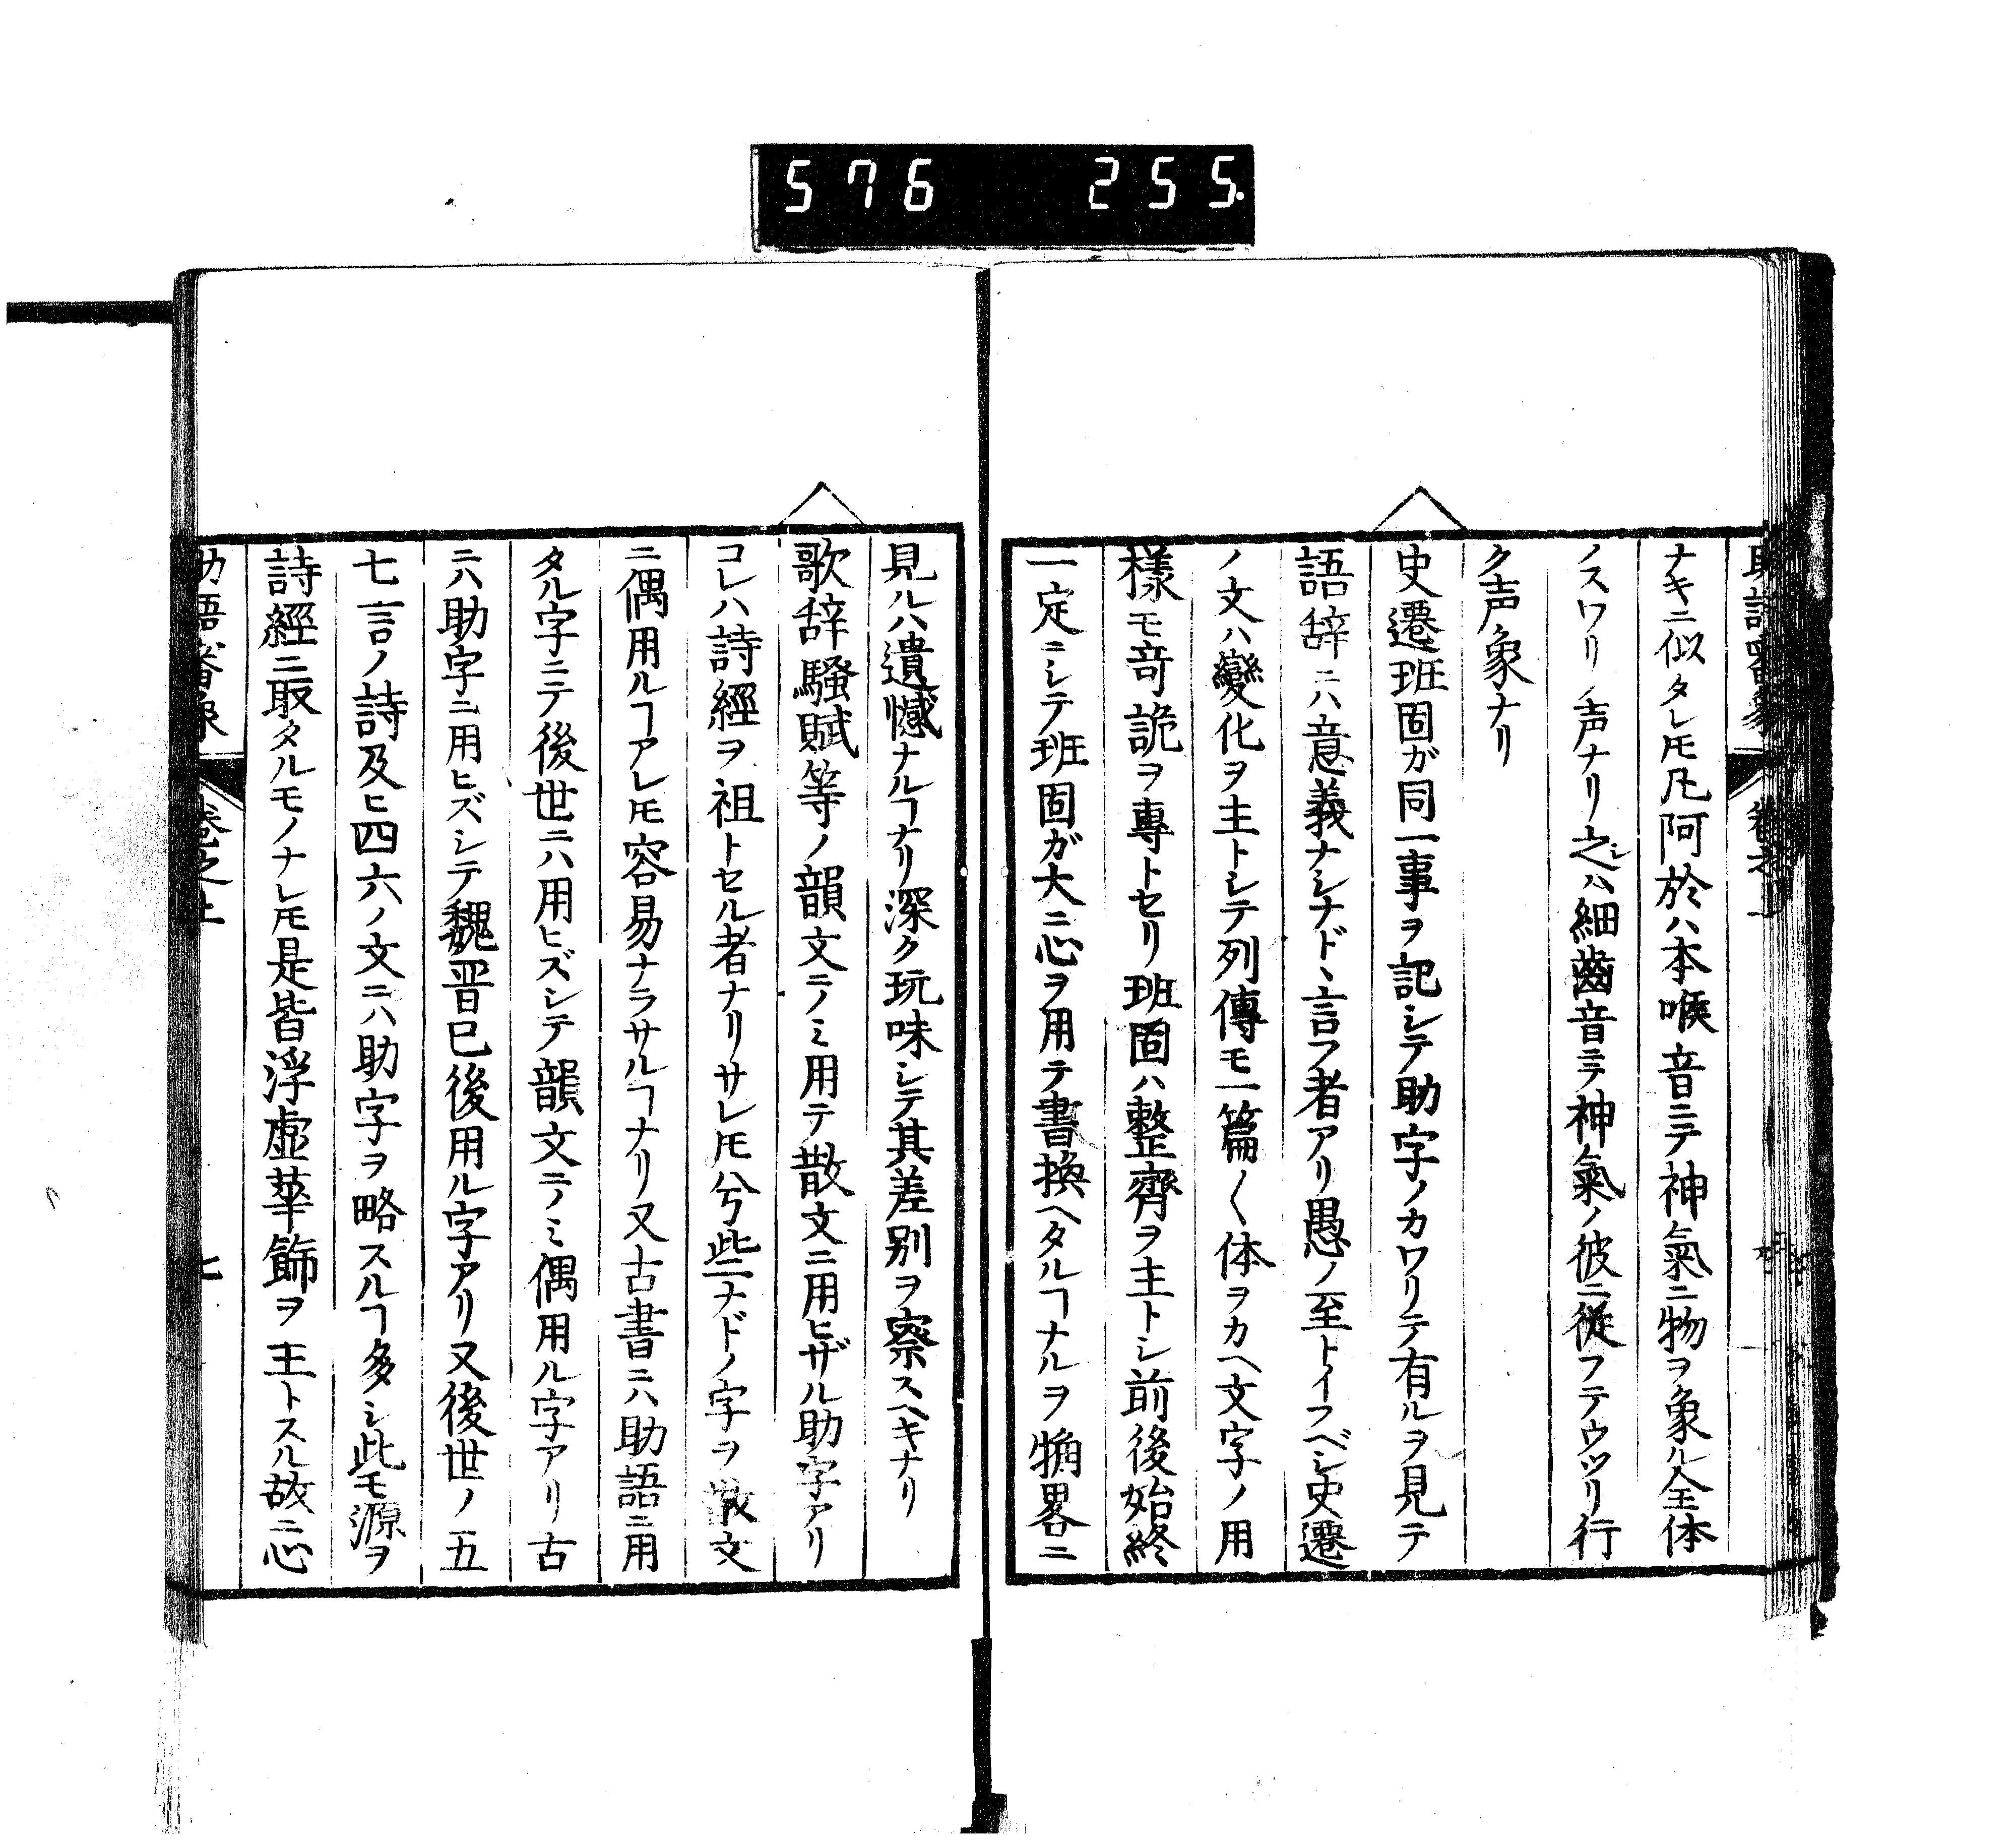 576 255.
ナキニ似タレ𪜈凡阿於ハ本喉音ニテ神氣ニ物ヲ象ル全体
ノスワリノ声ナリ之シハ細齒音ニテ神氣ノ彼ニ從フテウツリ行
ク声象ナリ
史遷班固ガ同一事ヲ記シテ助字ノカワリテ有ルヲ見テ
語辞ニハ意義ナシナドヽ言フ者アリ愚ノ至トイフベシ史遷
ノ文ハ變化ヲ主トシテ列傳モ一篇〱体ヲカヘ文字ノ用
樣モ竒詭ヲ專トセリ班固ハ整齊ヲ主トシ前後始終
一定ニシテ班固ガ大ニ心ヲ用テ書換ヘタルヿナルヲ觕畧ニ
見ルハ遺憾ナルヿナリ深ク玩味シテ其差別ヲ察スヘキナリ
歌辞騷賦等ノ韻文ニノミ用テ散文ニ用ヒザル助字アリ
コレハ詩經ヲ祖トセル者ナリサレ𪜈兮些ナドノ字ヲ散文
ニ偶用ルヿアレ𪜈容易ナラサルヿナリ又古書ニハ助語ニ用
タル字ニテ後世ニハ用ヒズシテ韻文ニノミ偶用ル字アリ古
ニハ助字ニ用ヒズシテ魏晋已後用ル字アリ又後世ノ五
七言ノ詩及ヒ四六ノ文ニハ助字ヲ略スルヿ多シ此モ源ヲ
詩經ニ取タルモノナレ𪜈是皆浮虛華飾ヲ主トスル故ニ心
卷之上
七